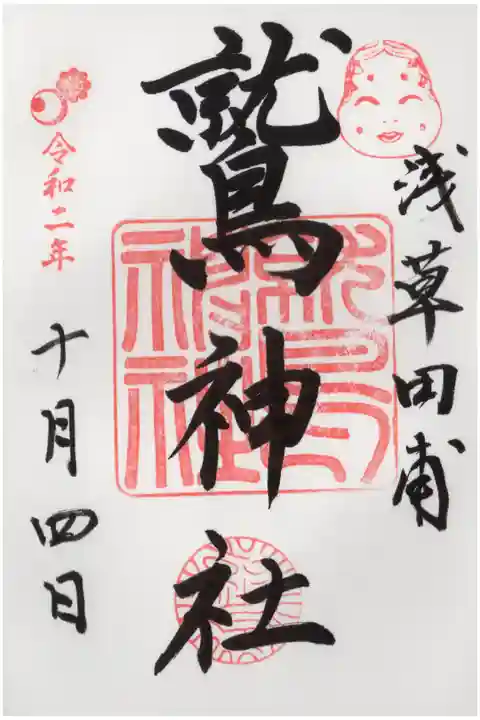 浅草田甫
鷲神社
令和二年
十月四日